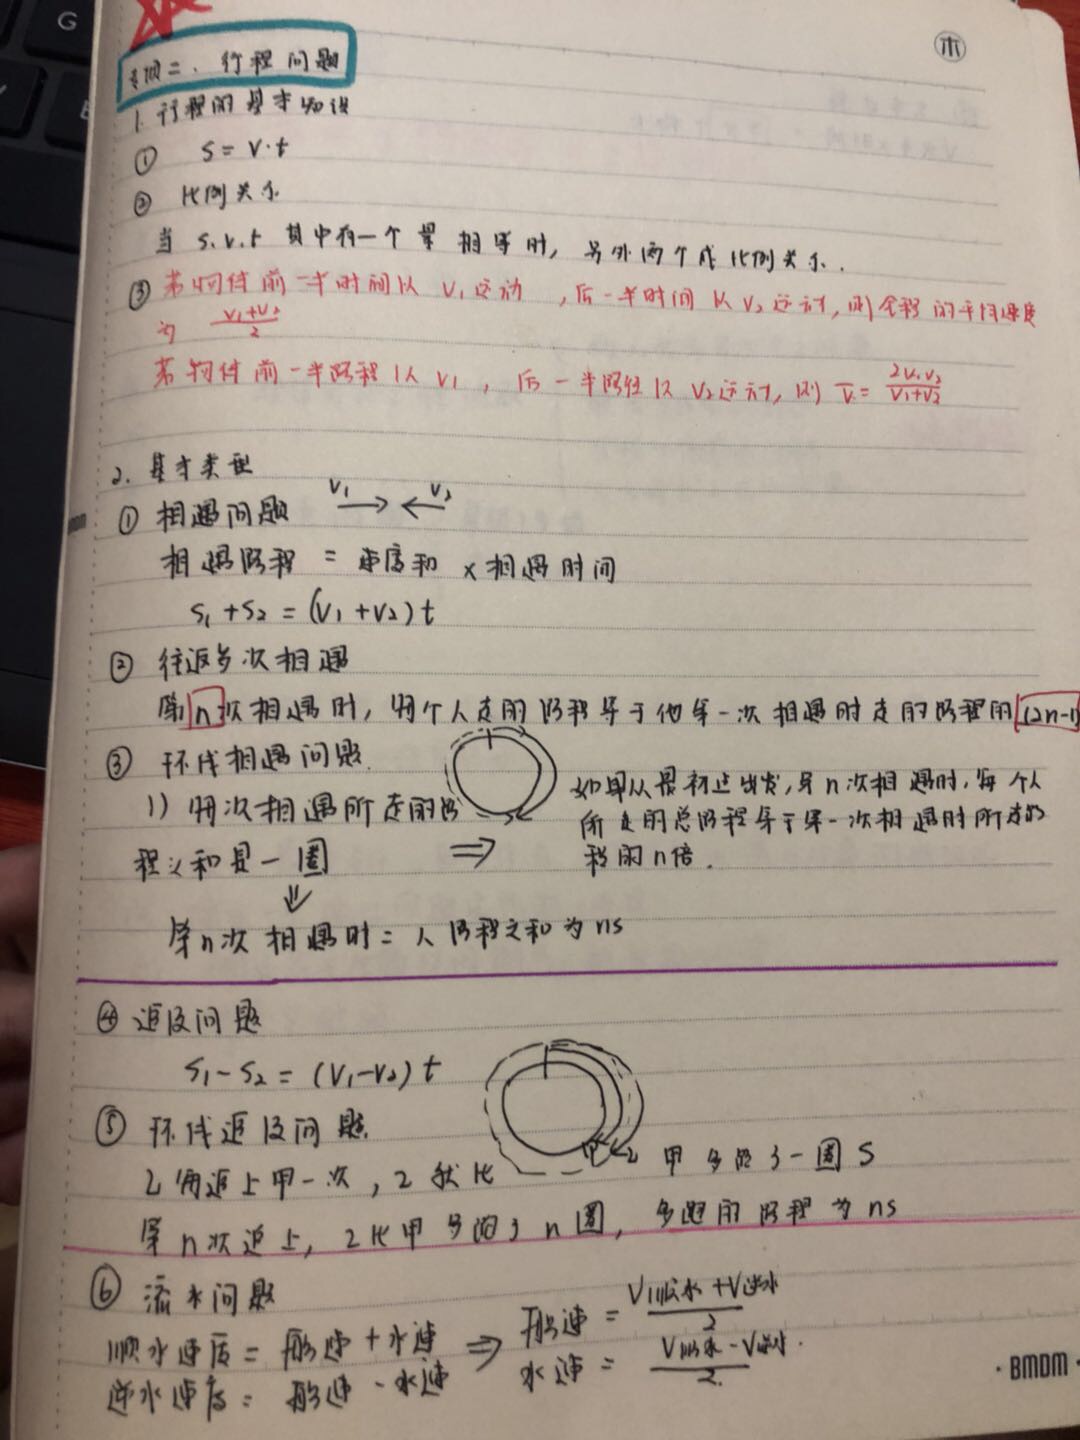 G
木
专项二、行程问题
1. 行程的基本知识
① S = v·t
② 比例关系
当 s.v.t 其中有一个量相等时, 另外两个成比例关系.
③ 若物体前一半时间以 V₁ 运动, 后一半时间以 V₂ 运动, 则全程的平均速度
为 (V₁+V₂)/2
若物体前一半路程以 V₁, 后一半路径以 V₂运动, 则 V̄ = 2V₁V₂/(V₁+V₂)
2. 基本类型
① 相遇问题 V₁ → ← V₂
相遇路程 = 速度和 × 相遇时间
S₁+S₂ = (V₁+V₂)t
② 往返多次相遇
第n次相遇时, 每个人走的路程等于他第一次相遇时走的路程的(2n-1)
③ 环线相遇问题.
1) 每次相遇所走的路
程之和是一圈 ⇒
如果从最初止出发, 第n次相遇时, 每个人
所走的总路程等于第一次相遇时所走的
程的n倍.
⇓
第n次相遇时 = 人路程之和为ns
④ 追及问题
S₁-S₂ = (V₁-V₂)t
⑤ 环线追及问题.
乙每追上甲一次, 乙就比
甲 乙 甲多跑了一圈S
第n次追上, 乙比甲多跑了n圈, 多跑的路程为ns
⑥ 流水问题
顺水速度 = 船速 + 水速 ⇒ 船速 = (V顺水+V逆水)/2
逆水速度 = 船速 - 水速 水速 = (V顺水-V逆水)/2.
·BMDM·